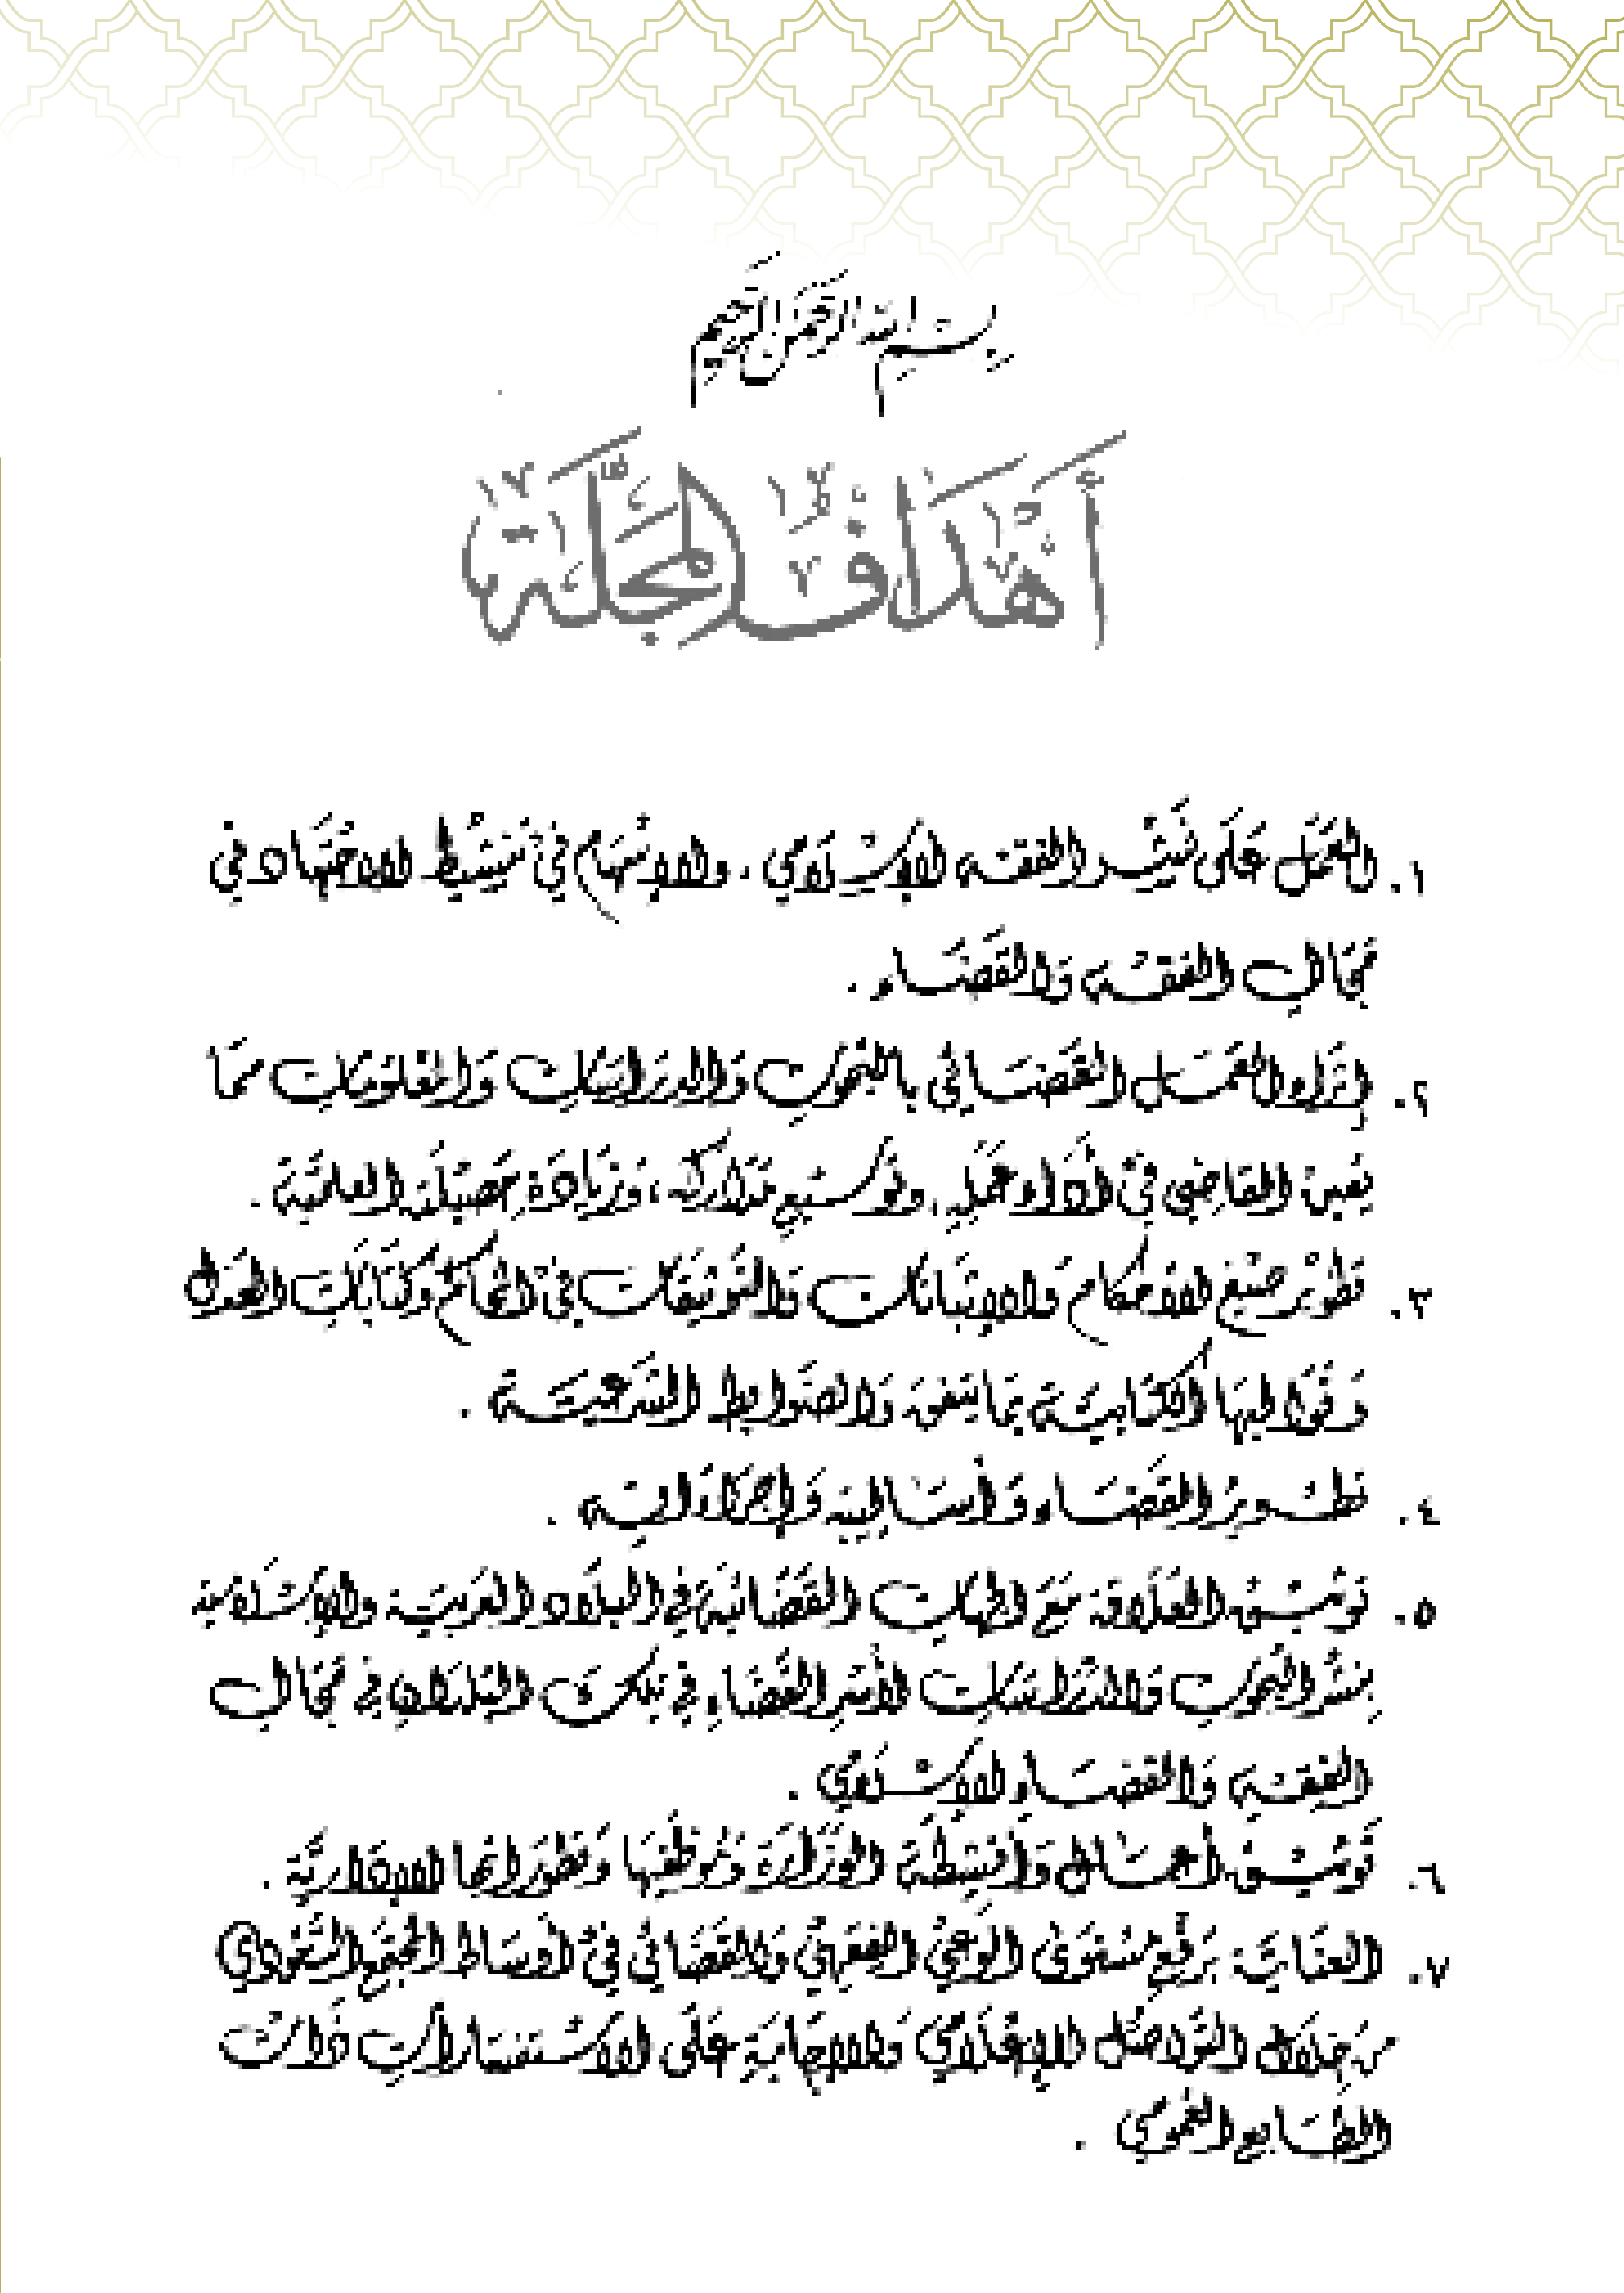 بسم الله الرحمن الرحيم
أهداف المجلة
١. العمل على نشر الفقه الإسلامي، والإسهام في تنشيط الاجتهاد في
مجال الفقه والقضاء.
٢. إثراء العمل القضائي بالبحوث والدراسات والمعلومات مما
يعين القاضي في أداء عمله، وتوسيع مداركه، وزيادة حصيلته العلمية.
٣. تطوير صيغ الأحكام والإثباتات والتوثيقات في المحاكم وكتابات العدل
وقوالبها الكتابية بما يتفق والضوابط الشرعية.
٤. تطوير القضاء وأساليبه وإجراءاته.
٥. توثيق العلاقة مع الجهات القضائية في البلاد العربية والإسلامية
بنشر البحوث والدراسات لأسر القضاء في تلك البلدان في مجال
الفقه والقضاء الإسلامي.
٦. توثيق أعمال وأنشطة الوزارة وموظفيها وتطوراتها الإدارية.
٧. العناية برفع مستوى الوعي الفقهي والقضائي في أوساط المجتمع السعودي
من خلال التواصل الإعلامي والإجابة على الاستفسارات ذات
الطابع العمومي.